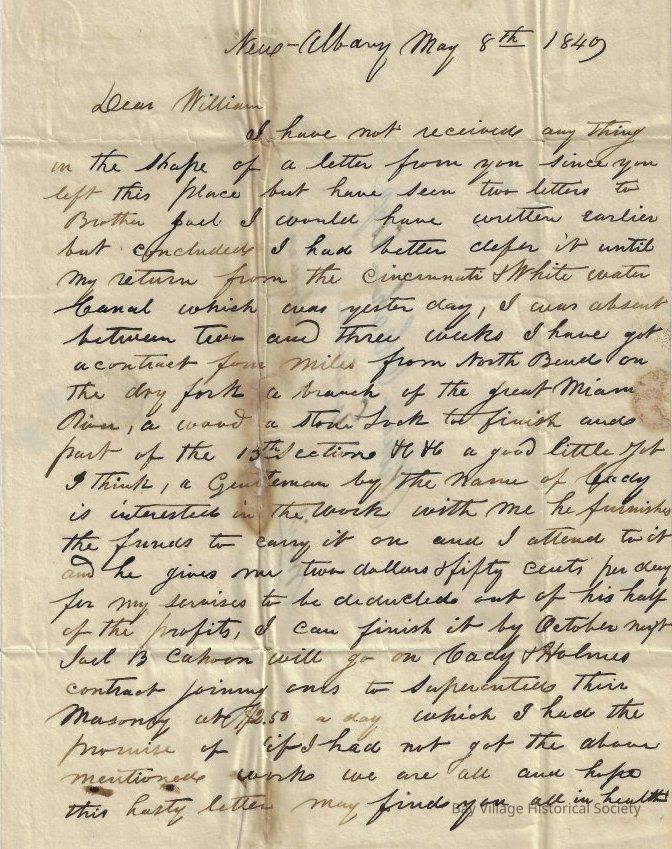 New-Albany May 8th 1840
Dear William
I have not received any thing
in the shape of a letter from you since you
left this place but have seen two letters to
Brother Joel I would have written earlier
but concluded I had better defer it until
my return from the Cincinnati & White water
Canal which was yester day, I was absent
between two and three weeks I have got
a contract four miles from North Bend on
the dry fork a branch of the great Miami
River, a wood a stone Lock to finish and
part of the 13th Section &c &c a good little Job
I think, a Gentleman by the name of Cady
is interested in the work with me he furnishes
the funds to carry it on and I attend to it
and he gives me two dollars & fifty cents per day
for my servises to be deducted out of his half
of the profits, I can finish it by October next
Joel B Cahoon will go on Cady & Holmes
contract joining ours to Superented their
Masonry at $2.50 a day which I had the
promise of if I had not got the above
mentioned works we are all and hope
this hasty letter may find you all in health
Bay Village Historical Society